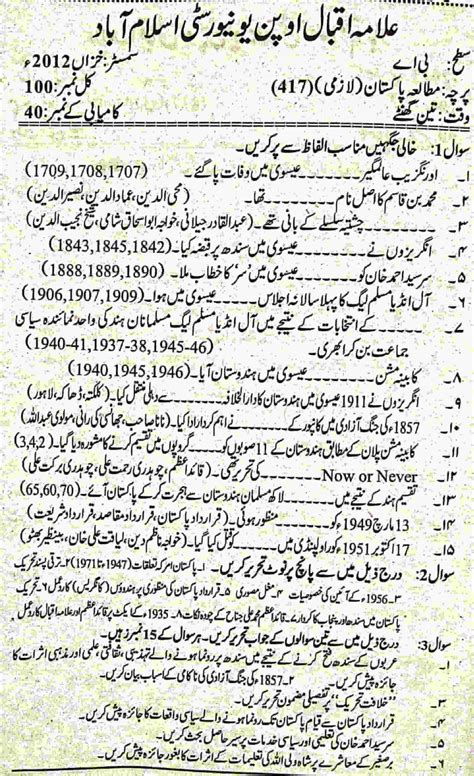 علامہ اقبال اوپن یونیورسٹی اسلام آباد
سطح: بی اے سمسٹر: خزاں 2012ء
پرچہ: مطالعہ پاکستان (لازمی) (417) کل نمبر: 100
وقت: تین گھنٹے کامیابی کے نمبر: 40
سوال 1: خالی جگہیں مناسب الفاظ سے پر کریں۔
۱۔ اورنگزیب عالمگیر ------- عیسوی میں وفات پا گئے۔ (1709,1708,1707)
۲۔ محمد بن قاسم کا اصل نام ------- تھا۔ (محی الدین، عماد الدین، نصیر الدین)
۳۔ ------- چشتیہ سلسلے کے بانی تھے۔ (عبدالقادر جیلانی، خواجہ ابو اسحاق شامی، شیخ نجیب الدین)
۴۔ انگریزوں نے ------- عیسوی میں سندھ پر قبضہ کیا۔ (1843,1845,1842)
۵۔ سرسید احمد خان کو ------- عیسوی میں 'سر' کا خطاب ملا۔ (1888,1889,1890)
۶۔ آل انڈیا مسلم لیگ کا پہلا سالانہ اجلاس ------- عیسوی میں ہوا۔ (1906,1907,1909)
۷۔ ------- کے انتخابات کے نتیجے میں آل انڈیا مسلم لیگ مسلمانان ہند کی واحد نمائندہ سیاسی
جماعت بن کر ابھری۔ (1940-41,1937-38,1945-46)
۸۔ کابینہ مشن ------- عیسوی میں ہندوستان آیا۔ (1940,1945,1946)
۹۔ انگریزوں نے 1911 عیسوی میں ہندوستان کا دارالخلافہ ------- سے دہلی منتقل کیا۔ (کلکتہ، ڈھاکہ، لاہور)
۱۰۔ 1857ء کی جنگ آزادی میں کانپور کے ------- نے اہم کردار ادا کیا۔ (نانا صاحب، جھانسی کی رانی، مولوی عبداللہ)
۱۱۔ کابینہ مشن پلان کے مطابق ہندوستان کے 11 صوبوں کو ------- گروپوں میں تقسیم کرنے کا مشورہ دیا گیا۔ (3,4,2)
۱۲۔ Now or Never ------- کی تحریر تھی۔ (قائداعظم، چوہدری رحمت علی، چوہدری برکت علی)
۱۳۔ تقسیم ہند کے نتیجے میں ------- لاکھ مسلمان ہندوستان سے ہجرت کر کے پاکستان آئے۔ (65,60,70)
۱۴۔ 13 مارچ 1949 کو ------- منظور ہوئی۔ (قرارداد پاکستان، قرارداد مقاصد، قرارداد شریعت)
۱۵۔ 17 اکتوبر 1951 کو راولپنڈی میں ------- کو قتل کیا گیا۔ (خواجہ ناظم دین، لیاقت علی خان، بینظیر بھٹو)
سوال 2: درج ذیل میں سے پانچ پر نوٹ تحریر کریں۔ ۱۔ پاک امریکہ تعلقات (1947 تا 1971) ۲۔ ترقی پسند تحریک
۳۔ 1956ء کے آئین کی خصوصیات ۴۔ مغل مصوری ۵۔ قرارداد پاکستان کی منظوری پر ہندوؤں (کانگریس) کا ردعمل ۶۔ تحریک
پاکستان میں سندھ اور پنجاب کا کردار ۷۔ قائداعظم محمد علی جناح کے چودہ نکات ۸۔ 1935ء کے ایکٹ پر قائداعظم اور علامہ اقبال کا ردعمل
سوال 3: درج ذیل میں سے تین سوالوں کے جواب تحریر کریں۔ ہر سوال کے 15 نمبر ہیں۔
۱۔ عربوں کے سندھ فتح کرنے کے نتیجے میں سندھ پر رونما ہونے والے تہذیبی، ثقافتی، علمی اور مذہبی اثرات کا
جائزہ پیش کریں۔ ۲۔ 1857ء کی جنگ آزادی کی ناکامی کے اسباب بیان کریں۔
۳۔ "خلافت تحریک" پر تفصیلی مضمون تحریر کریں۔
۴۔ قرارداد پاکستان سے قیام پاکستان تک رونما ہونے والے سیاسی واقعات کا جائزہ پیش کریں۔
۵۔ سرسید احمد خان کی تعلیمی اور سیاسی خدمات پر سیر حاصل بحث کریں۔
۶۔ برصغیر کے معاشرے پر شاہ ولی اللہ کی تعلیمات کے اثرات کا بغور جائزہ پیش کریں۔